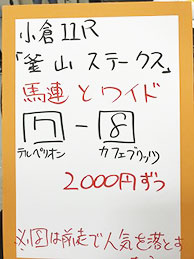 小倉11R
「釜山ステークス」
馬連とワイド
7-8
テルペリオン カフェブリッツ
2000円ずつ
は前走で人気を落とす